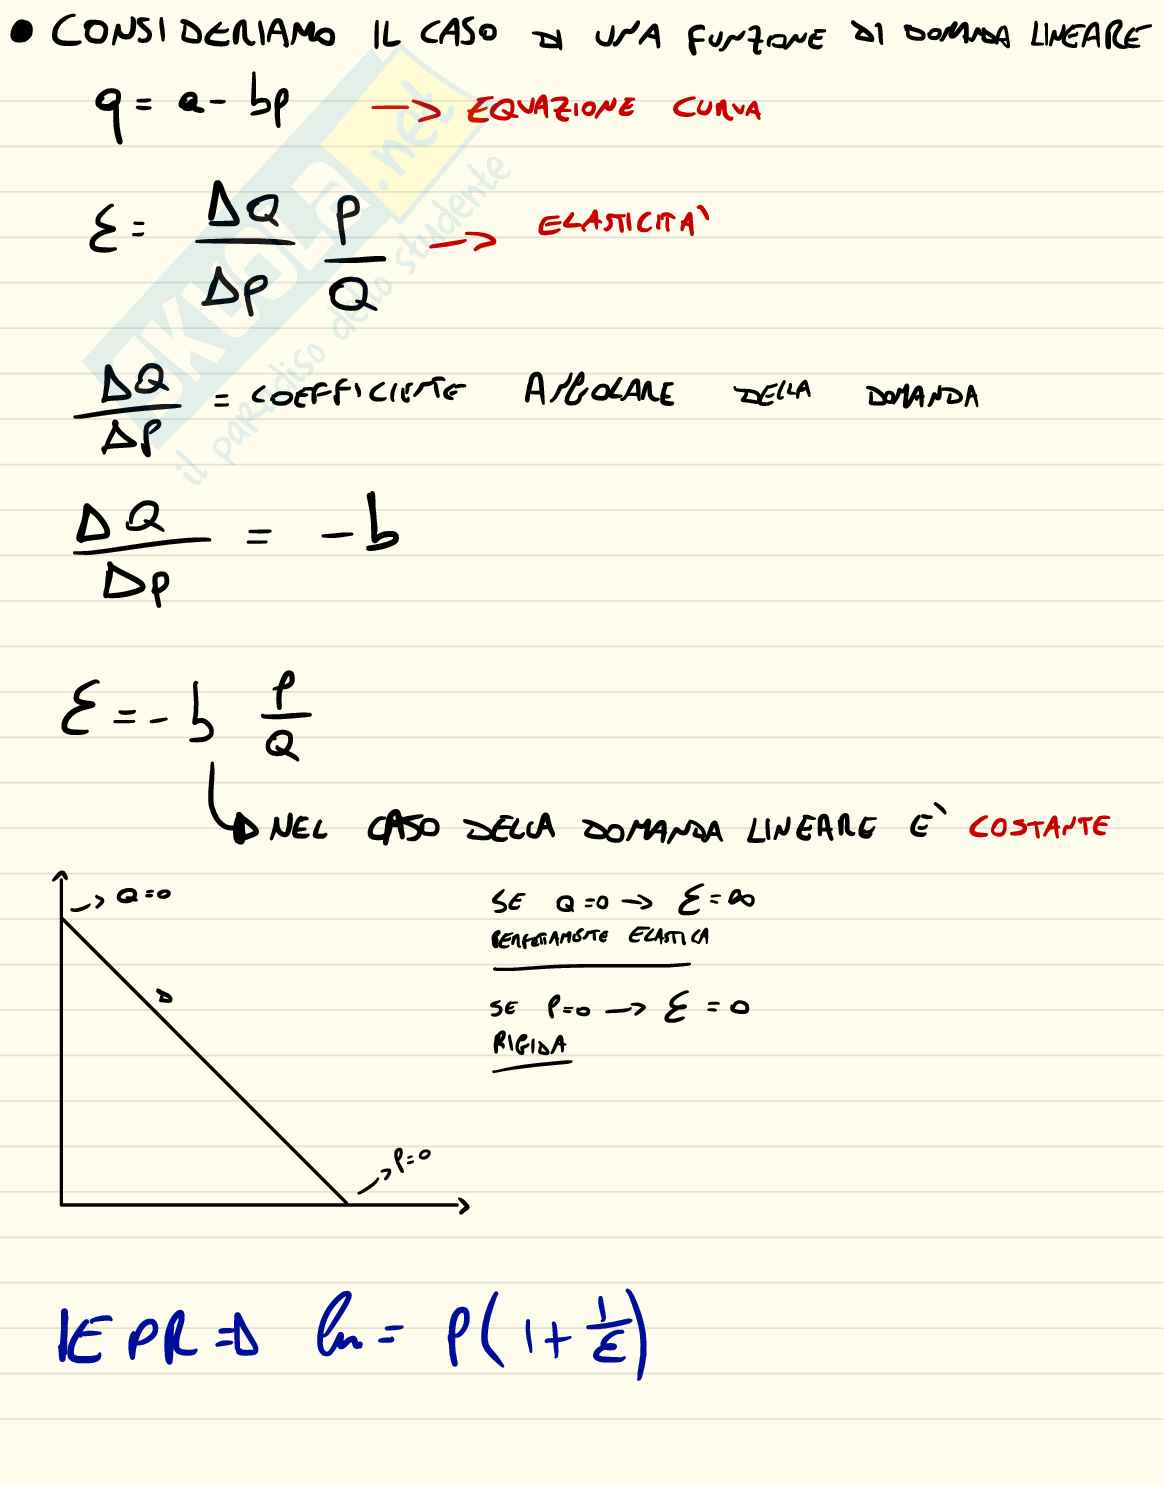 • CONSIDERIAMO IL CASO DI UNA FUNZIONE DI DOMANDA LINEARE
q = a - bp → EQUAZIONE CURVA
ε = ΔQ/Δp p/Q → ELASTICITÀ
ΔQ/ΔP = COEFFICIENTE ANGOLARE DELLA DOMANDA
ΔQ/Δp = -b
ε = -b P/Q
→ NEL CASO DELLA DOMANDA LINEARE E' COSTANTE
→ Q=0
D
→ P=0
SE Q=0 → ε=∞
PERFETTAMENTE ELASTICA
SE P=0 → ε=0
RIGIDA
P(1+1/ε)
SKUOLA.net
il paradiso dello studente